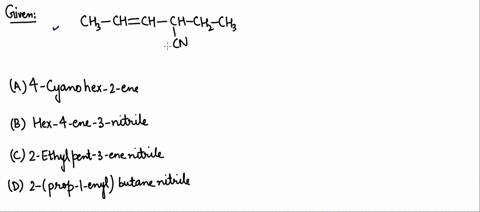 Given:
CH₃-CH=CH-CH-CH₂-CH₃
CN
(A) 4-Cyanohex-2-ene
(B) Hex-4-ene-3-nitrile
(C) 2-Ethylpent-3-enenitrile
(D) 2-(prop-1-enyl) butanenitrile